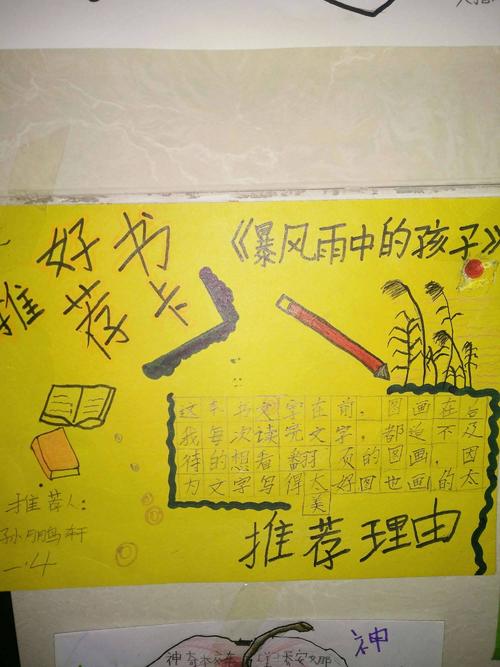 好书
推荐卡
《暴风雨中的孩子》
这本书文字在前，图画在后
我每次读完文字，都迫不及
待的想看翻页的图画，因
为文字写得太好图也画的太
美
推荐理由
推荐人：
孙鹏轩
一.4
神